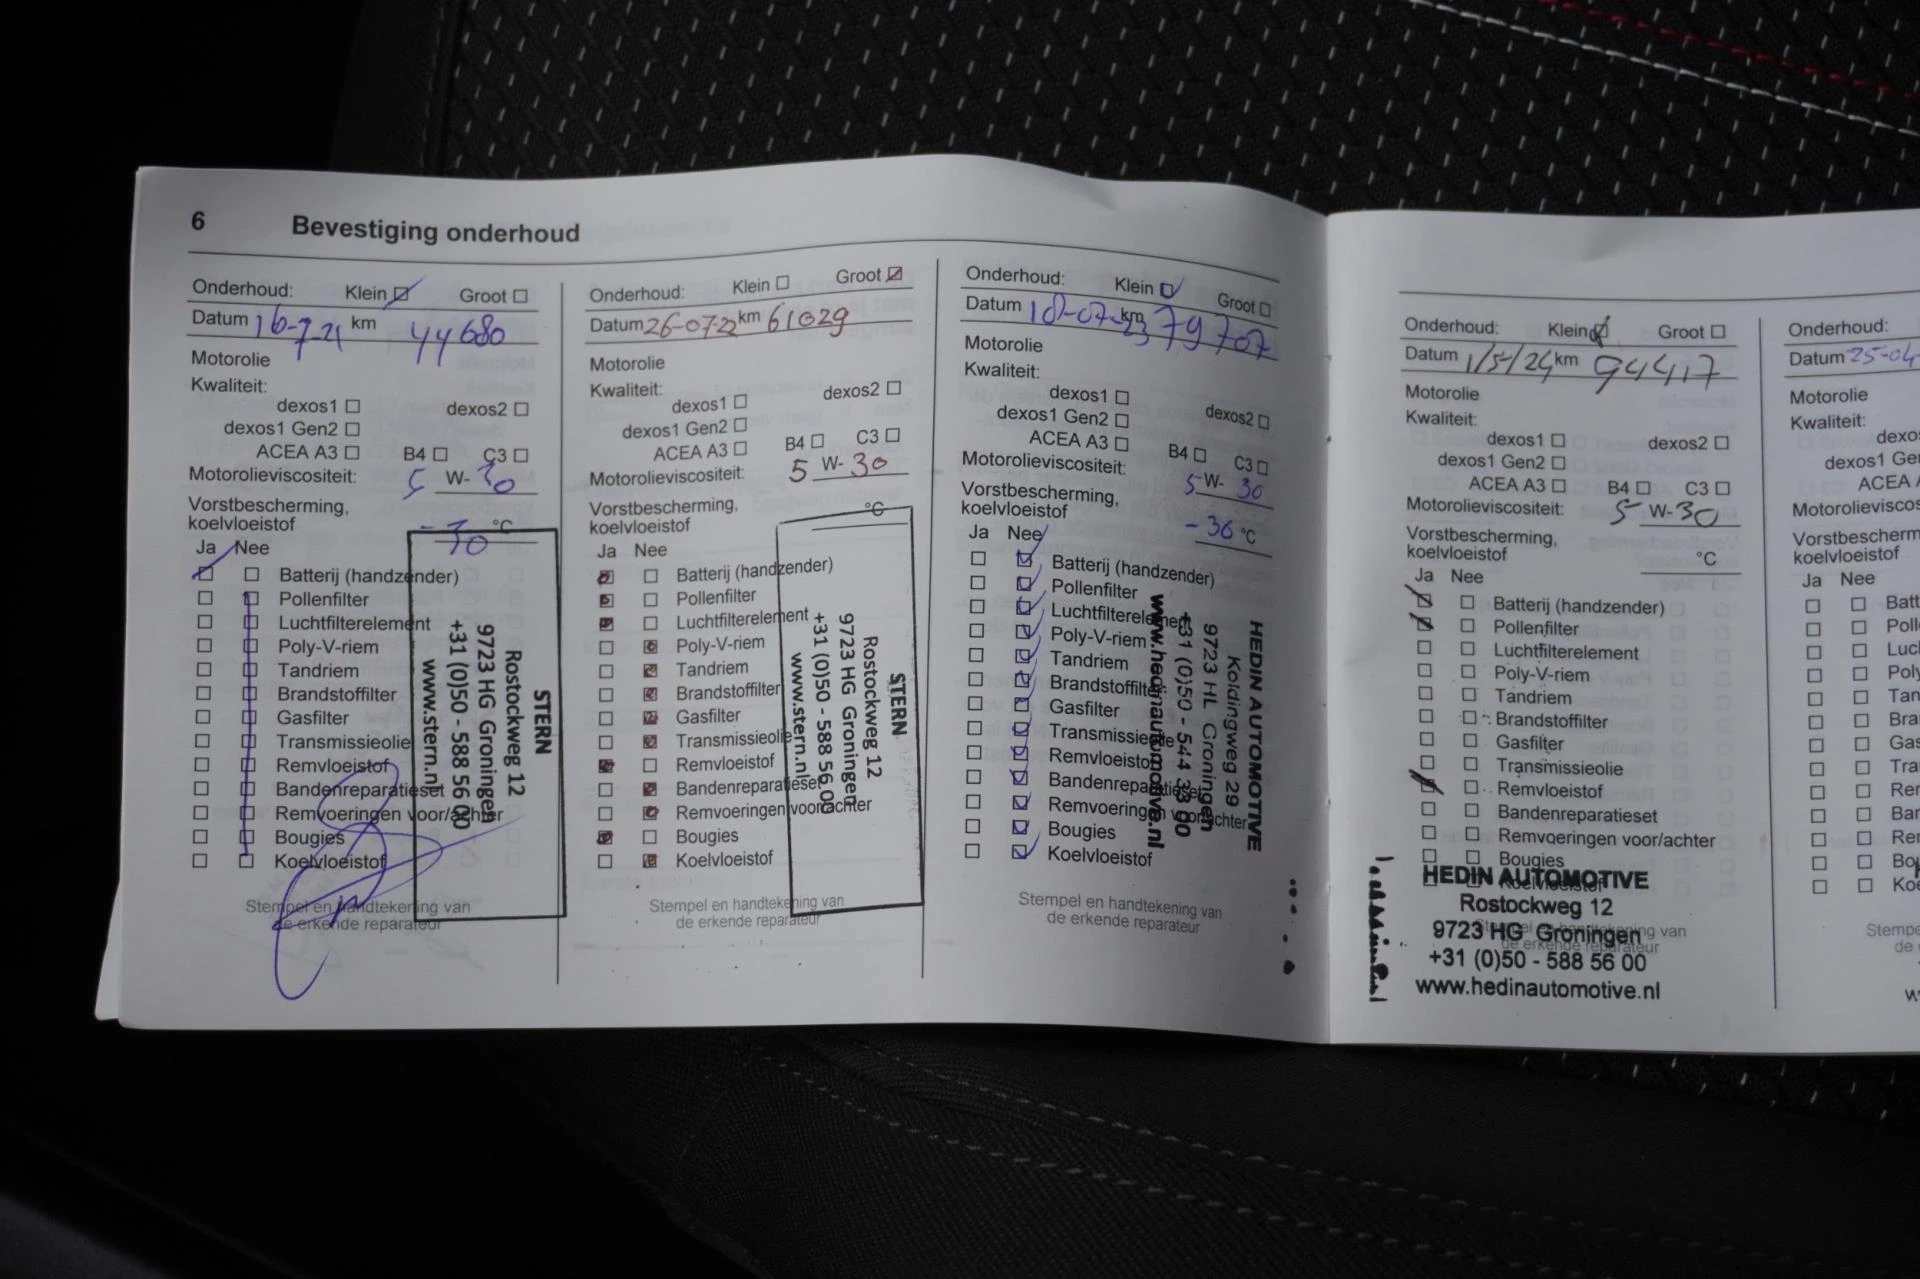 6 Bevestiging onderhoud
Onderhoud: Klein Groot
Datum 16-7-21 km 44680
Motorolie
Kwaliteit:
dexos1 dexos2
dexos1 Gen2
ACEA A3 B4 C3
Motorolieviscositeit: 5 W-30
Vorstbescherming,
koelvloeistof -30 °C
Ja Nee
Batterij (handzender)
Pollenfilter
Luchtfilterelement
Poly-V-riem
Tandriem
Brandstoffilter
Gasfilter
Transmissieolie
Remvloeistof
Bandenreparatieset
Remvoeringen voor/achter
Bougies
Koelvloeistof
Stempel en handtekening van
de erkende reparateur
STERN
Rostockweg 12
9723 HG Groningen
+31 (0)50 - 588 56 00
www.stern.nl
Onderhoud: Klein Groot
Datum 26-07-22 km 61029
Motorolie
Kwaliteit:
dexos1 dexos2
dexos1 Gen2
ACEA A3 B4 C3
Motorolieviscositeit: 5 W-30
Vorstbescherming,
koelvloeistof °C
Ja Nee
Batterij (handzender)
Pollenfilter
Luchtfilterelement
Poly-V-riem
Tandriem
Brandstoffilter
Gasfilter
Transmissieolie
Remvloeistof
Bandenreparatieset
Remvoeringen voor/achter
Bougies
Koelvloeistof
Stempel en handtekening van
de erkende reparateur
STERN
Rostockweg 12
9723 HG Groningen
+31 (0)50 - 588 56 00
www.stern.nl
Onderhoud: Klein Groot
Datum 18-07-23 km 79707
Motorolie
Kwaliteit:
dexos1 dexos2
dexos1 Gen2
ACEA A3 B4 C3
Motorolieviscositeit: 5 W-30
Vorstbescherming,
koelvloeistof -36 °C
Ja Nee
Batterij (handzender)
Pollenfilter
Luchtfilterelement
Poly-V-riem
Tandriem
Brandstoffilter
Gasfilter
Transmissieolie
Remvloeistof
Bandenreparatieset
Remvoeringen voor/achter
Bougies
Koelvloeistof
Stempel en handtekening van
de erkende reparateur
HEDIN AUTOMOTIVE
Koldingweg 29
9723 HL Groningen
+31 (0)50 - 544 33 00
www.hedinautomotive.nl
Onderhoud: Klein Groot
Datum 1/5/24 km 94417
Motorolie
Kwaliteit:
dexos1 dexos2
dexos1 Gen2
ACEA A3 B4 C3
Motorolieviscositeit: 5 W-30
Vorstbescherming,
koelvloeistof °C
Ja Nee
Batterij (handzender)
Pollenfilter
Luchtfilterelement
Poly-V-riem
Tandriem
Brandstoffilter
Gasfilter
Transmissieolie
Remvloeistof
Bandenreparatieset
Remvoeringen voor/achter
Bougies
Koelvloeistof
Stempel en handtekening van
de erkende reparateur
HEDIN AUTOMOTIVE
Rostockweg 12
9723 HG Groningen
+31 (0)50 - 588 56 00
www.hedinautomotive.nl
Onderhoud:
Datum 25-04-
Motorolie
Kwaliteit:
dexos
dexos1 Ge
ACEA A
Motorolieviscos
Vorstbescherm
koelvloeistof
Ja Nee
Batt
Poll
Luc
Poly
Tan
Bra
Gas
Tra
Ren
Bar
Re
Bo
Koe
Stempe
de
w